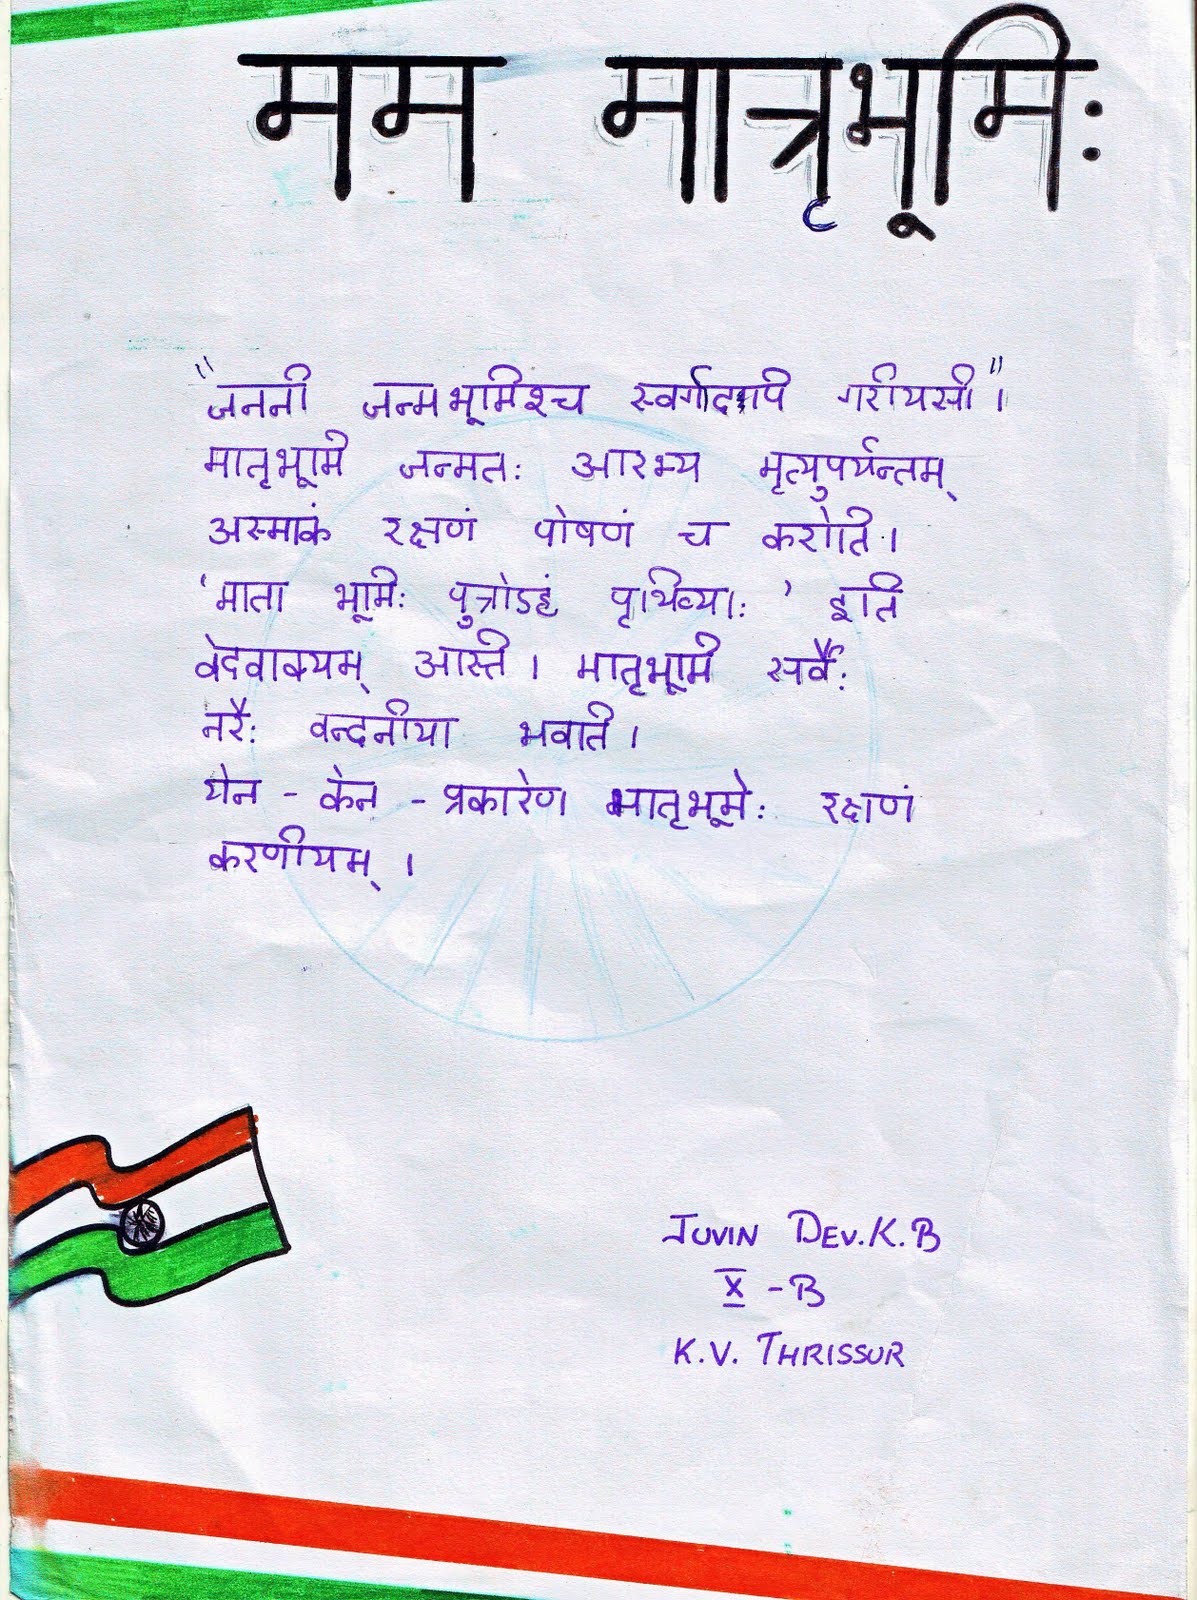 मम मात्रृभूमिः
"जननी जन्मभूमिश्च स्वर्गादपि गरीयसी"।
मातृभूमि जन्मतः आरभ्य मृत्युपर्यन्तम्
अस्माकं रक्षणं पोषणं च करोति।
'माता भूमिः पुत्रोऽहं पृथिव्याः' इति
वेदवाक्यम् अस्ति। मातृभूमि सर्वैः
नरैः वन्दनीया भवति।
येन - केन - प्रकारेण मातृभूमेः रक्षणं
करणीयम्।
JUVIN DEV.K.B
X - B
K.V. THRISSUR